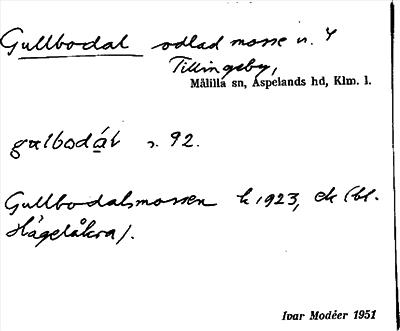 Gullbodal odlad mosse n. Y
Tillingeby,
Målilla sn, Aspelands hd, Klm. l.
gulbodál s. 92.
Gullbodalsmossen k 1923, ek (bl.
Hägelåkra).
Ivar Modéer 1951